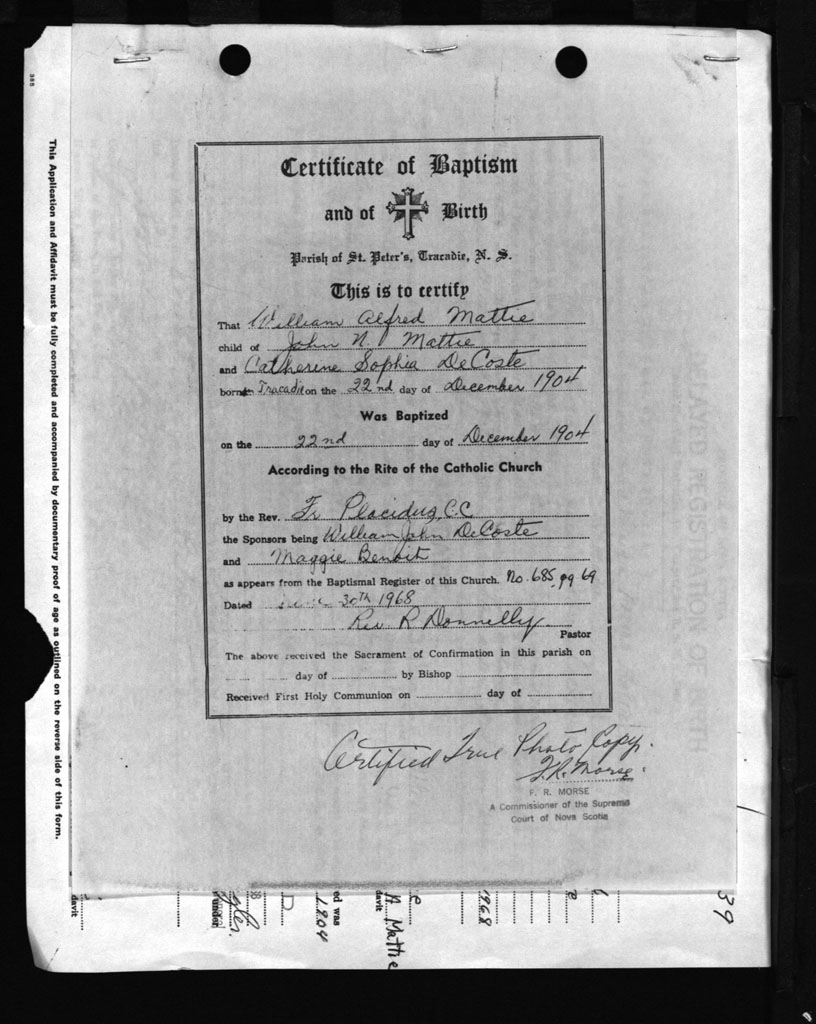 Certificate of Baptism
and of Birth
Parish of St. Peter's, Tracadie, N. S.
This is to certify
That William Alfred Mattie
child of John N. Mattie
and Catherine Sophia DeCoste
born in Tracadie on the 22nd day of December 1904
Was Baptized
on the 22nd day of December 1904
According to the Rite of the Catholic Church
by the Rev. Fr Placidus, C.C.
the Sponsors being William John DeCoste
and Maggie Benoit
as appears from the Baptismal Register of this Church. No. 685, pg 69
Dated 30th 1968
Rev R Donnelly
Pastor
The above received the Sacrament of Confirmation in this parish on
day of by Bishop
Received First Holy Communion on day of
Certified True Photo Copy.
F.R. Morse.
F. R. MORSE
A Commissioner of the Supreme
Court of Nova Scotia
This Application and Affidavit must be fully completed and accompanied by documentary proof of age as outlined on the reverse side of this form.
39
1968
A. Mattie
davit
ed was
1904
D
under